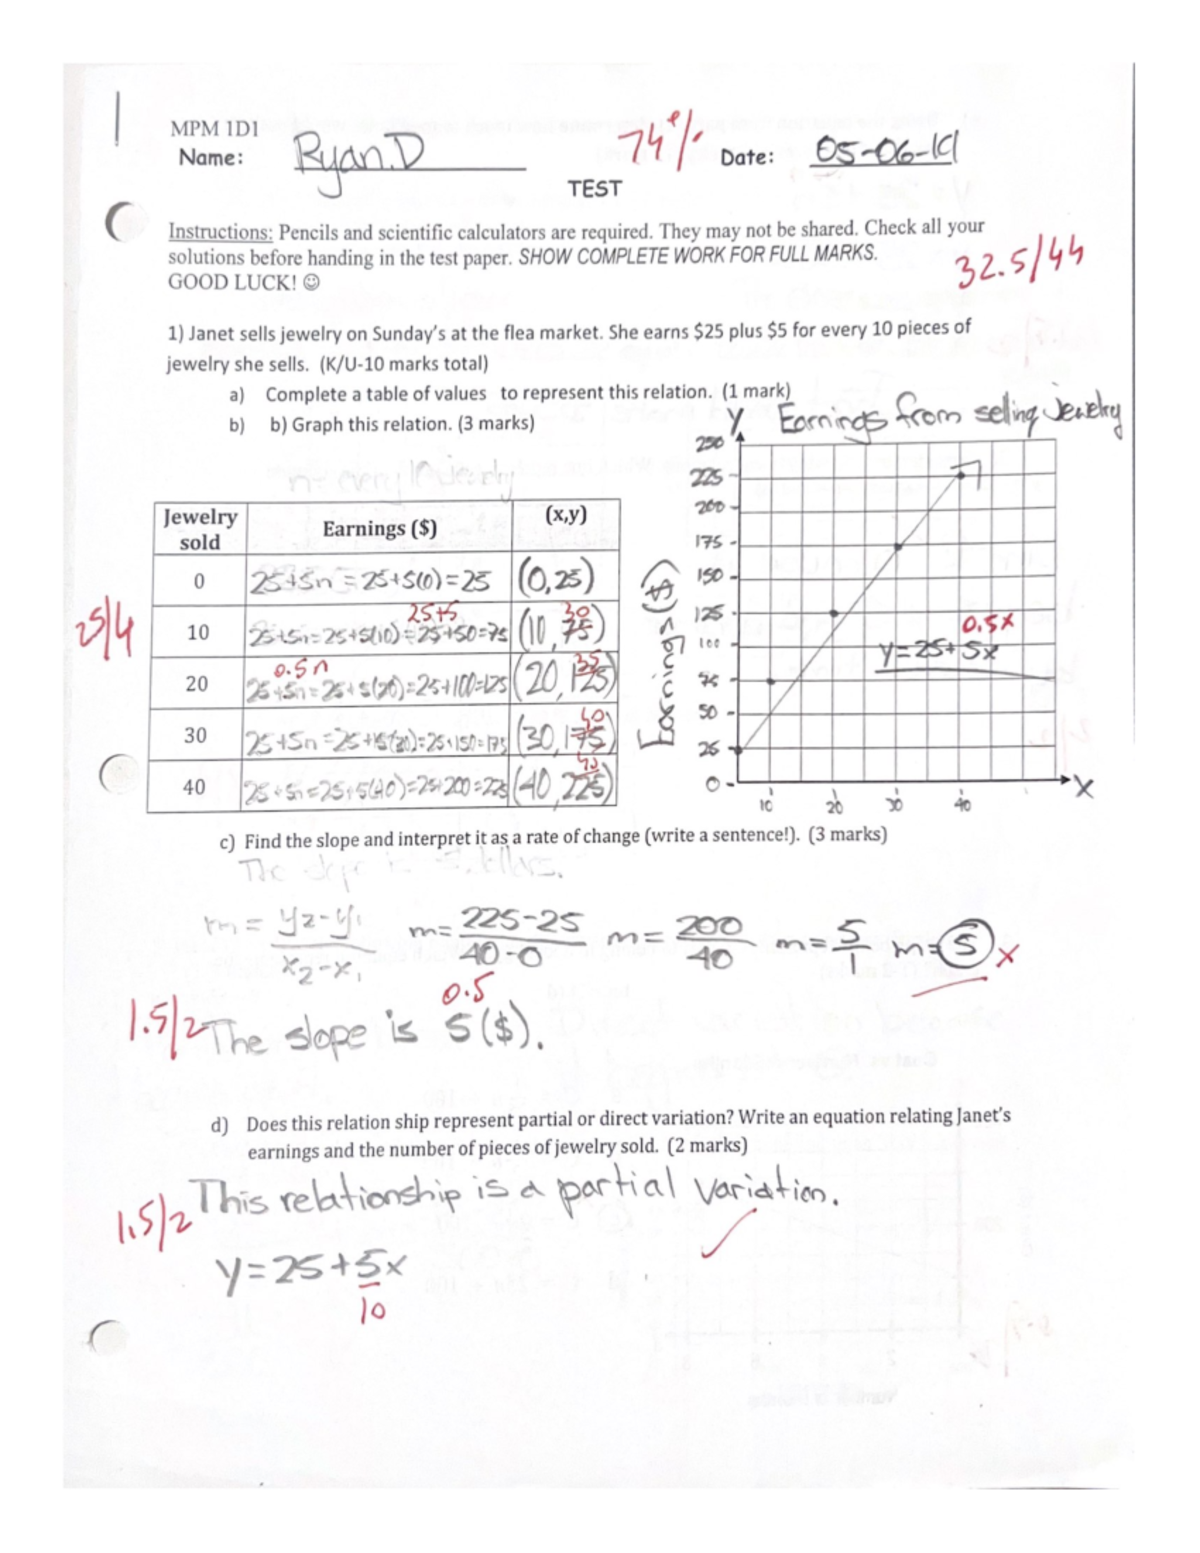 MPM 1D1
Name: Ryan.D 74% Date: 05-06-19
TEST
Instructions: Pencils and scientific calculators are required. They may not be shared. Check all your
solutions before handing in the test paper. SHOW COMPLETE WORK FOR FULL MARKS.
GOOD LUCK! ☺
32.5/44
1) Janet sells jewelry on Sunday's at the flea market. She earns $25 plus $5 for every 10 pieces of
jewelry she sells. (K/U-10 marks total)
a) Complete a table of values to represent this relation. (1 mark)
b) b) Graph this relation. (3 marks)
n= every 10 jewelry
Jewelry sold Earnings ($) (x,y)
0 25+5n = 25+5(0)=25 (0,25)
25+5 30
10 25+5n=25+5(10)=25+50=75 (10,75)
0.5n 35
20 25+5n=25+5(20)=25+100=125 (20,125)
40
30 25+5n=25+5(30)=25+150=175 (30,175)
40 25+5n=25+5(40)=25+200=225 (40,225)
Y Earnings from selling Jewelry
250
225
200
175
150
125
100
75
50
25
0
10 20 30 40
X
Earnings ($)
0.5x
y=25+5x
c) Find the slope and interpret it as a rate of change (write a sentence!). (3 marks)
The slope is
m = y2-y1 / x2-x1 m= 225-25 / 40-0 m= 200 / 40 m= 5/1 m=5 x
0.5
1.5/2 The slope is 5($).
d) Does this relation ship represent partial or direct variation? Write an equation relating Janet's
earnings and the number of pieces of jewelry sold. (2 marks)
This relationship is a partial variation.
1.5/2
y=25+5x
10